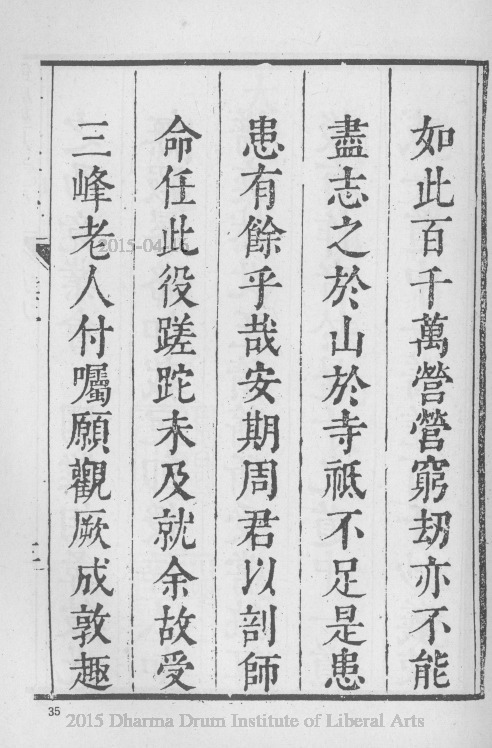 如此百千萬營營窮刧亦不能
盡志之於山於寺祇不足是患
患有餘乎哉安期周君以剖師
命任此役蹉跎未及就余故受
三峰老人付囑願觀厥成敦趣
35
2015 Dharma Drum Institute of Liberal Arts